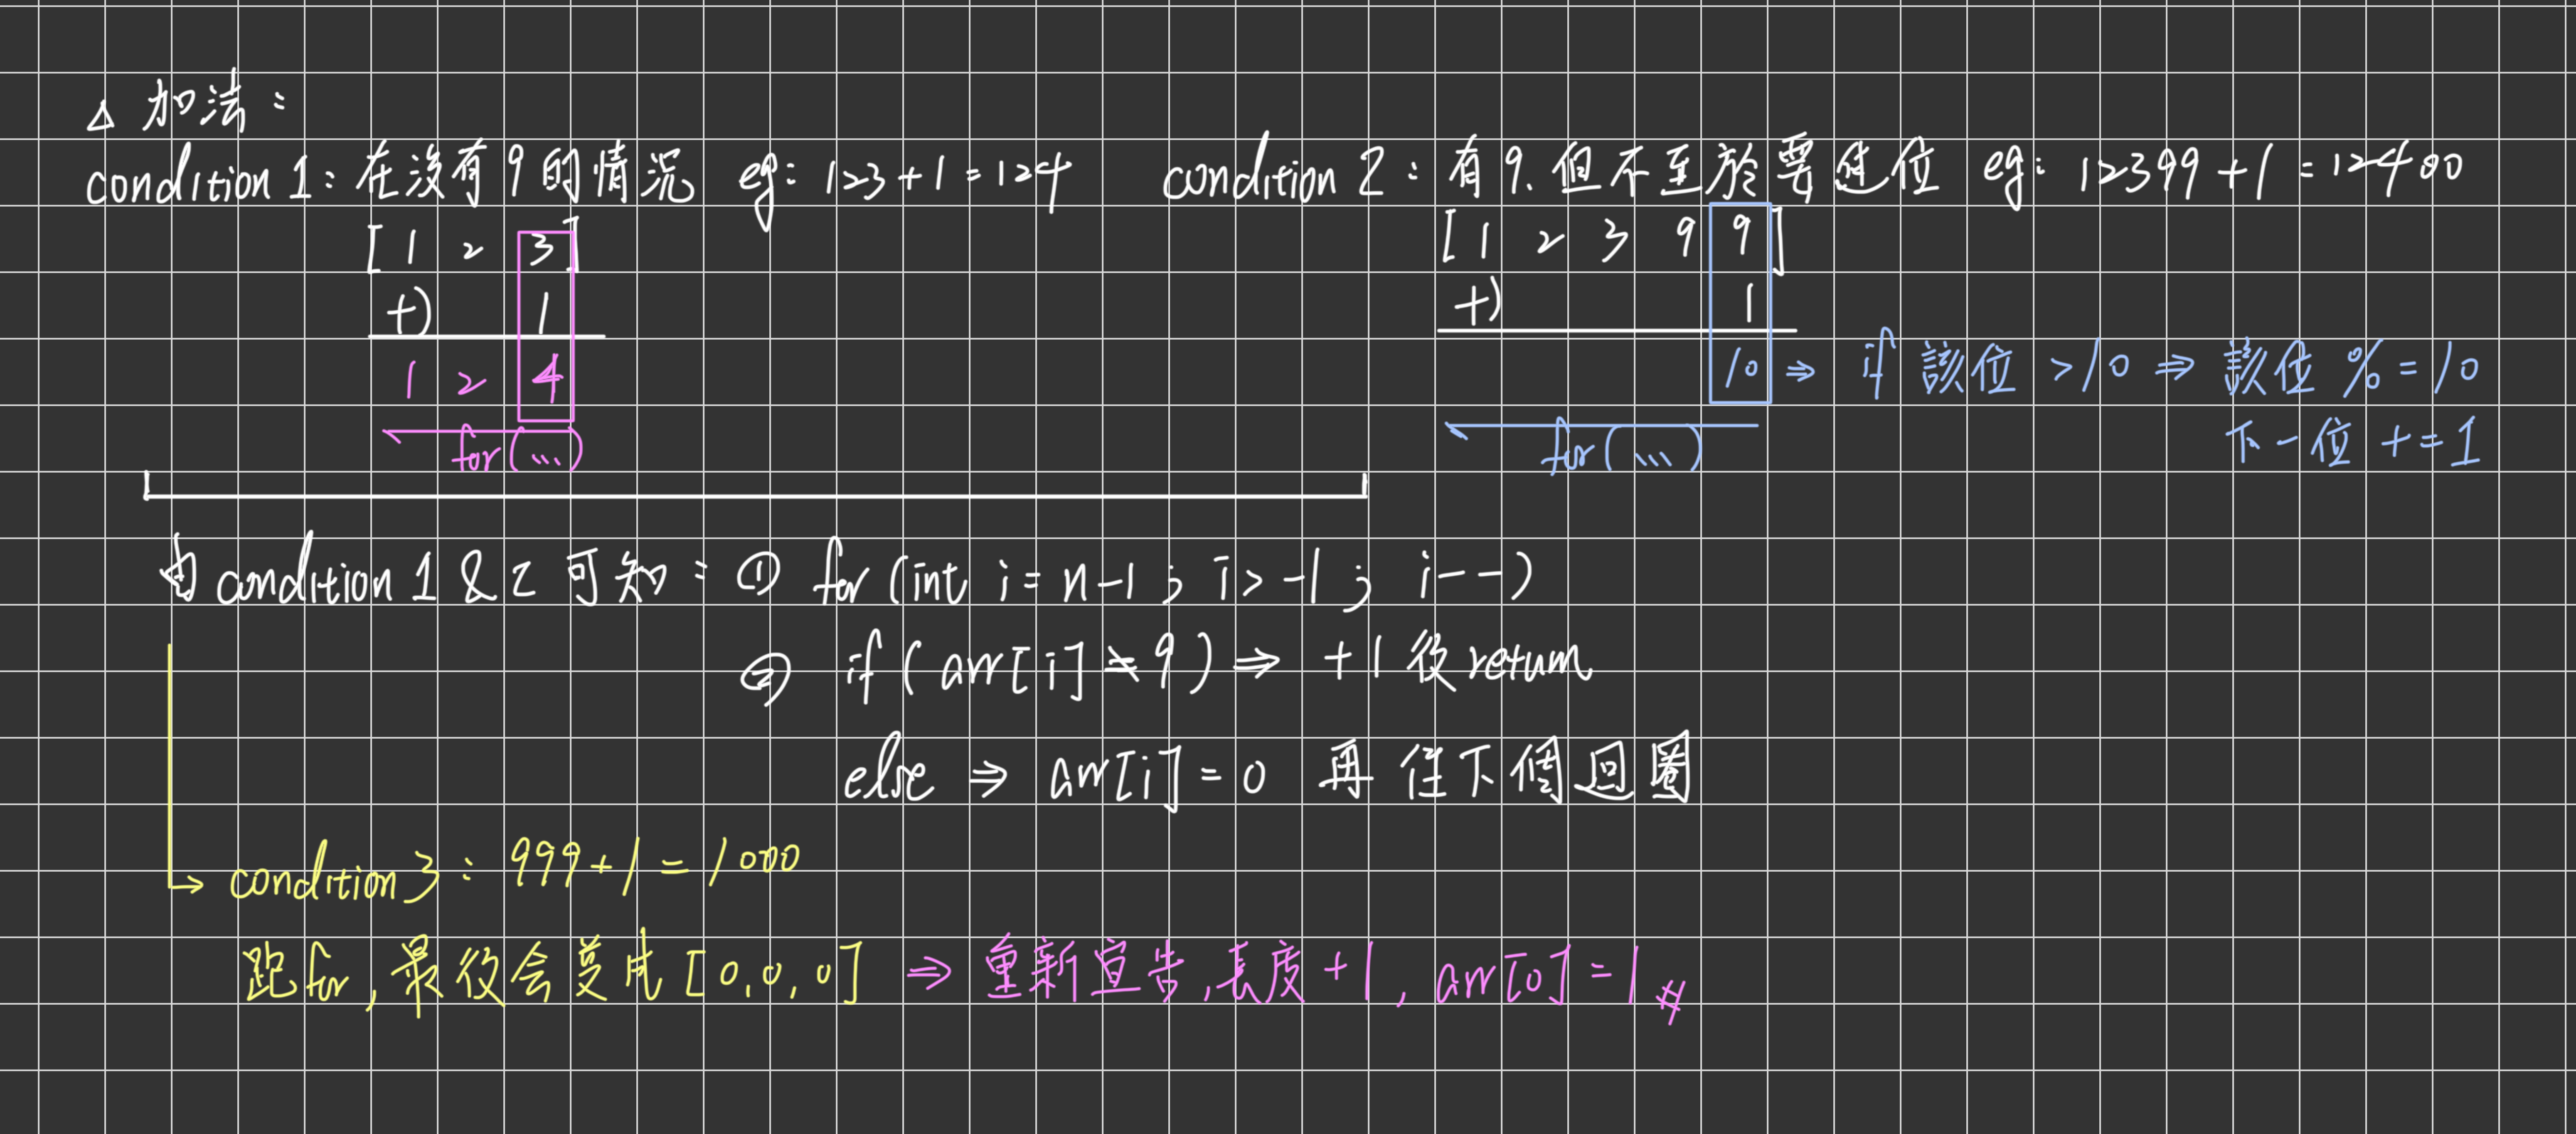 △ 加法：
condition 1：在沒有9的情況 eg: 123+1=124
[ 1 2 3 ]
+) 1
1 2 4
for(...)
condition 2：有9, 但不至於要進位 eg: 12399+1=12400
[ 1 2 3 9 9 ]
+) 1
10 ⇒ if 該位 >10 ⇒ 該位 %=10
下一位 +=1
for(...)
由 condition 1 & 2 可知：① for (int i = n-1 ; i > -1 ; i--)
② if ( arr[i] ≠ 9 ) ⇒ +1 後 return
else ⇒ arr[i] = 0 再往下個迴圈
→ condition 3：999+1=1000
跑for, 最後会變成 [0,0,0] ⇒ 重新宣告,長度+1, arr[0]=1 #